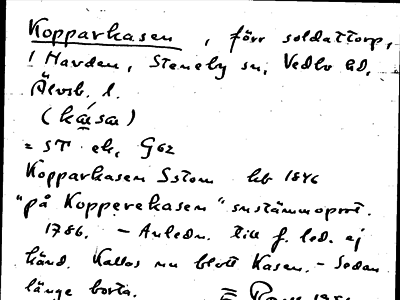 Kopparkasen, förr soldattorp,
i Havden, Steneby sn, Vedbo hd,
Älvsb. l.
(kása)
= ST ek, G62
Kopparkasen Sstom hb 1846
"på Kopperekasen" snstämmoprot.
1786. - Anledn. till f. led. ej
känd. Kallas nu blott Kasen. - Sedan
länge borta.